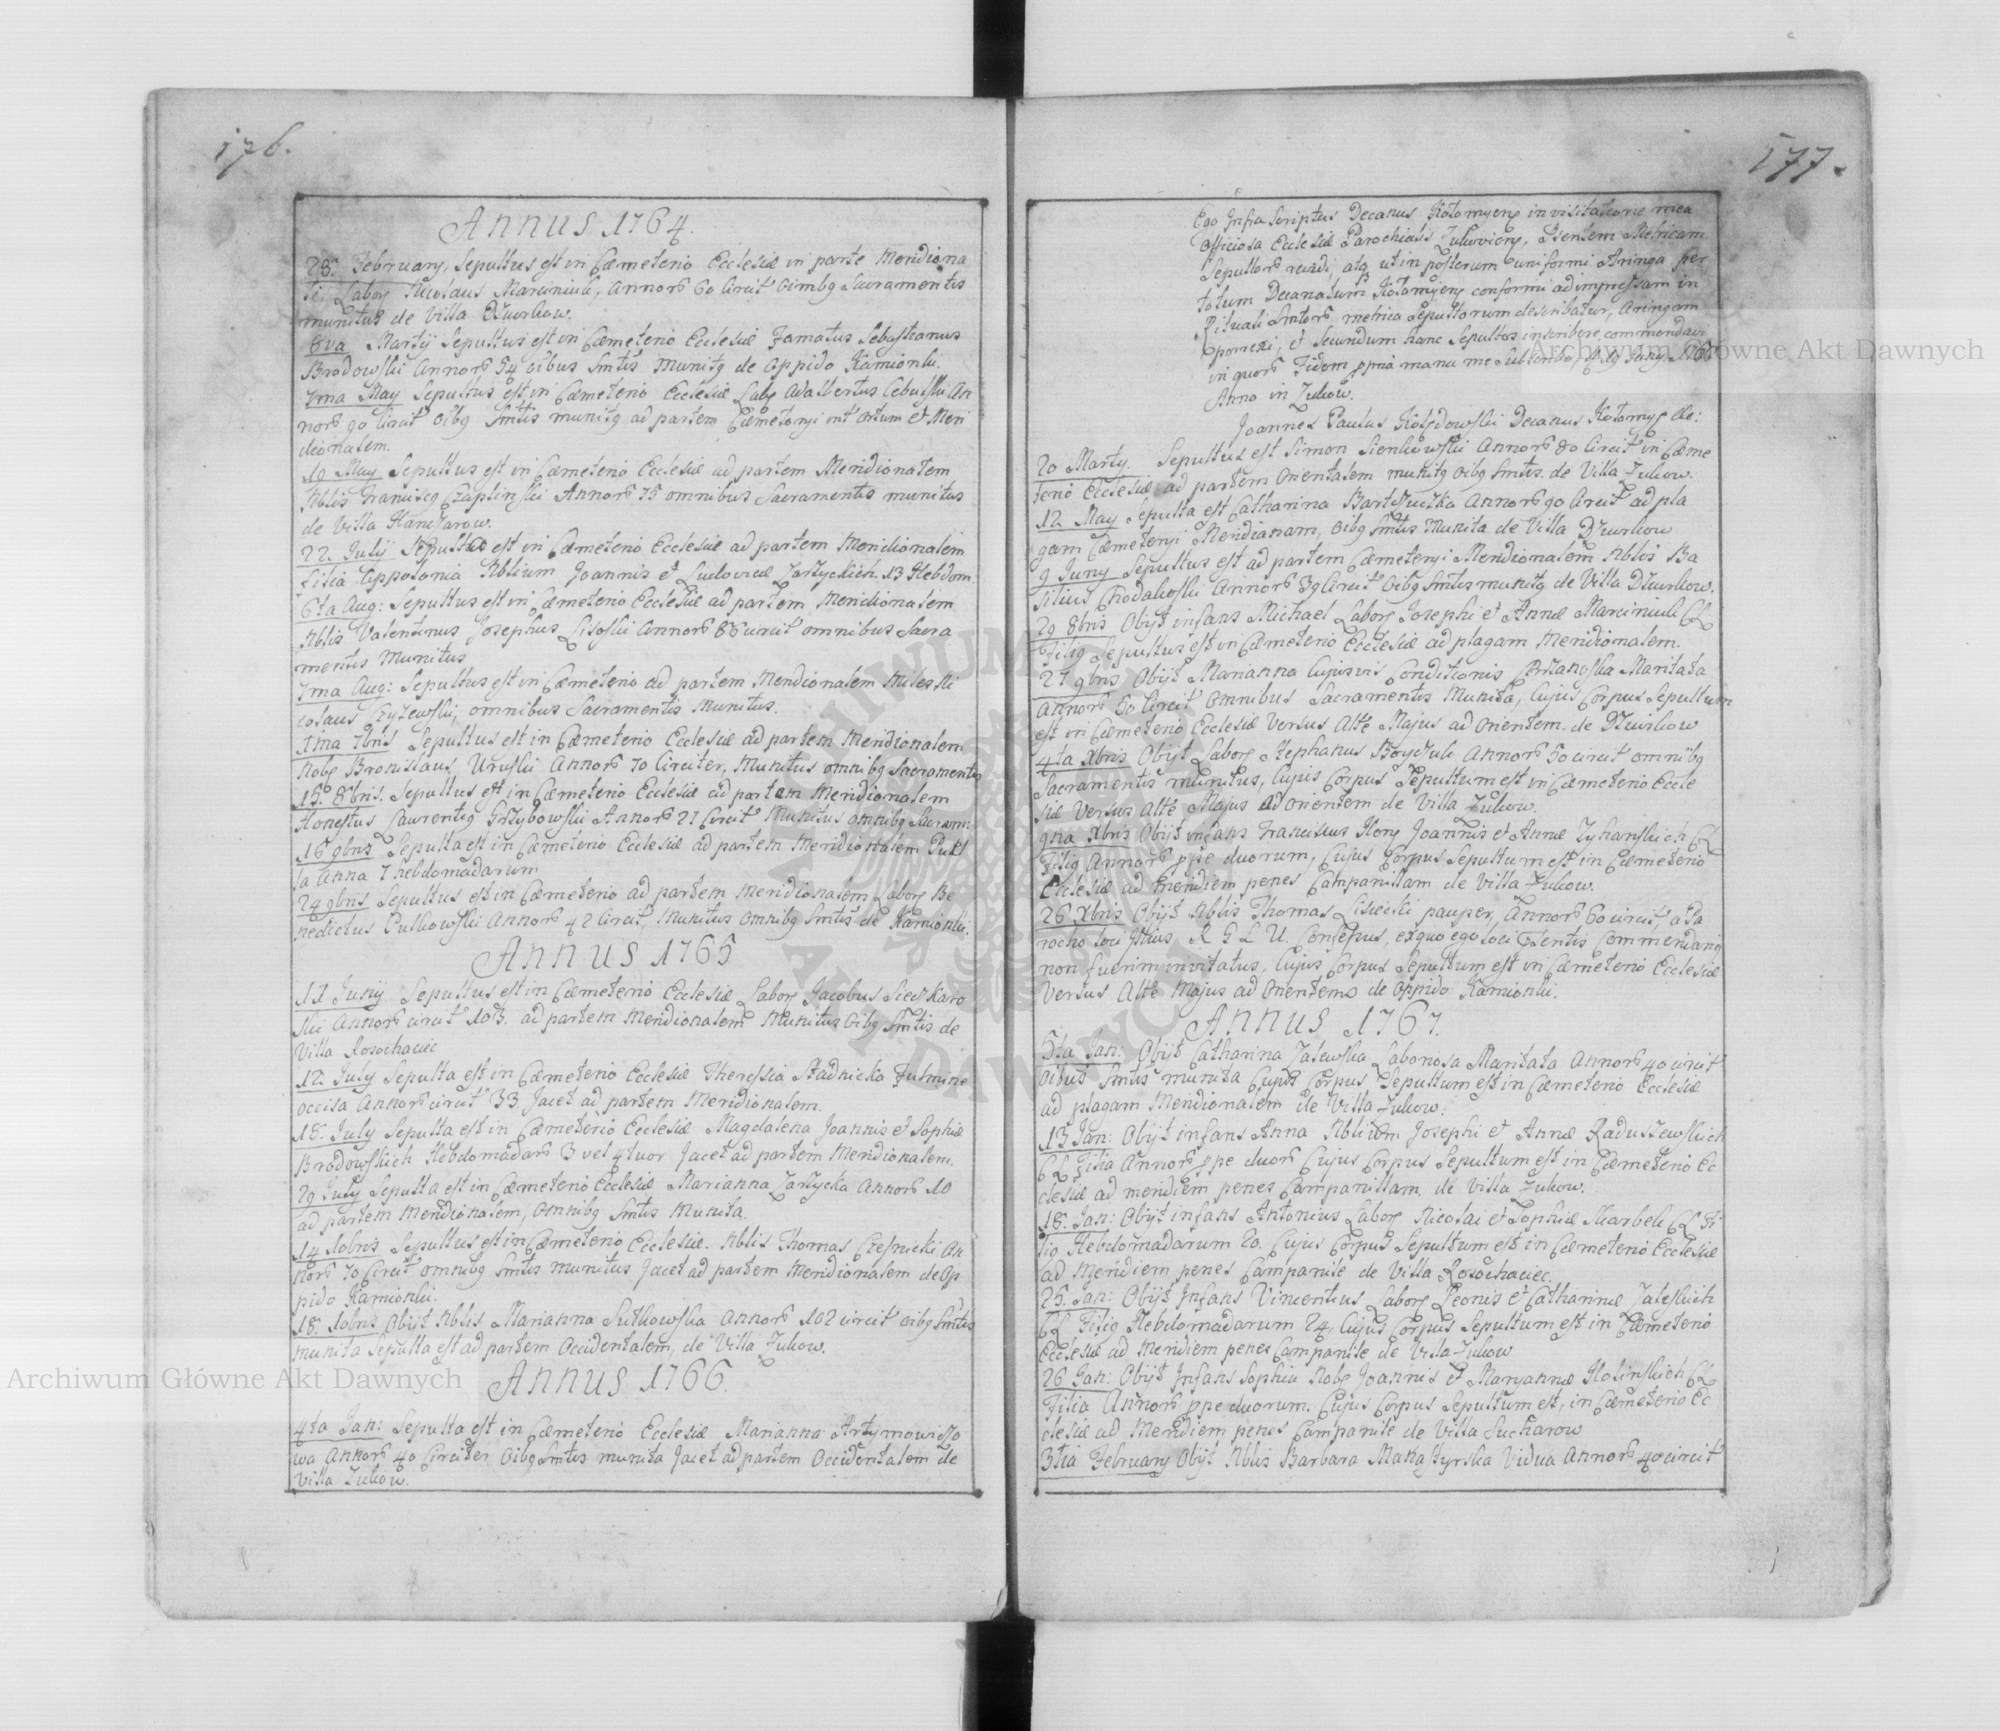 176.
Annus 1764.
28. February, Sepultus est in Cæmeterio Ecclesiæ in parte Meridiona
li, Labor Nicolaus Marciniuk, Annor 60 Circit oimbq Sacramentis
munitus de Villa Dzurkow.
8va Martij Sepultus est in Cæmeterio Ecclesiæ Famatus Sebastianus
Brodowski Annor 54 oibus Smtis Munitq de Oppido Kamionki.
7ma May Sepultus est in Cæmeterio Ecclesiæ Labq Adalbertus Cebulski An
nor 90 Circit oibq Smtis munitq ad partem Cæmeteryi int ortum et Meri
dionalem.
19 May Sepultus est in Cæmeterio Ecclesiæ ad partem Meridionalem
Nblis Franciscq Czaplinski Annor 75 omnibus Sacramentis munitus
de Villa Hanczarow.
22. July Sepulta est in Cæmeterio Ecclesiæ ad partem Meridionalem
filia Appolonia Nblium Joannis et Ludovicæ Zarzyckich. 13 Hebdom.
6ta Aug: Sepultus est in Cæmeterio Ecclesiæ ad partem Meridionalem
Nblis Valentinus Josephus Lisoski Annor 86 circit omnibus Sacra
mentis Munitus
7ma Aug: Sepultus est in Cæmeterio ad partem Meridionalem Miles Ni
colaus Czyzewski, omnibus Sacramentis Munitus.
1ma 7bris Sepultus est in Cæmeterio Ecclesiæ ad partem Meridionalem
Nobq Bronislaus Uruski Annor 70 Circiter, Munitus omnibq Sacramentis
15. 8bris. Sepultus est in Cæmeterio Ecclesiæ ad partem Meridionalem
Honestus Laurentiq Grzybowski Annor 21 Circit Munitus omnibq Sacram:
16 9bris Sepulta est in Cæmeterio Ecclesiæ ad partem Meridionalem Puel
la Anna 7 hebdomadarum
24 9bris Sepultus est in Cæmeterio ad partem Meridionalem Labor Be
nedictus Putkowski Annor 42 Circit, Munitus omnibq Smtis de Kamionki.
Annus 1765
11 Junij Sepultus est in Cæmeterio Ecclesiæ Labor Jacobus
ski Annor circit 103. ad partem Meridionalem Munitus oibq Smtis de
Villa Rosochaciec
12. July Sepulta est in Cæmeterio Ecclesiæ Theressia Stadnicka Fulmine
occisa Annor circit 33. Jacet ad partem Meridionalem.
18. July Sepulta est in Cæmeterio Ecclesiæ Magdalena Joannis et Sophiæ
Brodowskich Hebdomadar 3 vel 4tuor. Jacet ad partem Meridionalem.
29 July Sepulta est in Cæmeterio Ecclesiæ Marianna Zarzycka Annor 10
ad partem Meridionalem, omnibq Smtis Munita.
14 10bris Sepultus est in Cæmeterio Ecclesiæ. Nblis Thomas Czesnicki An
nor 70 Circit omnibq Smtis munitus Jacet ad partem Meridionalem de Op
pido Kamionki.
18. 10bris Obijt Nblis Marianna Sutkowska Annor 102 circit oibq Smtis
munita Sepulta est ad partem Occidentalem, de Villa Zukow.
Annus 1766.
4ta Jan: Sepulta est in Cæmeterio Ecclesiæ Marianna Artymowiczo
wa Annor 40 Circiter oibq Smtis munita Jacet ad partem Occidentalem de
Villa Zukow.
177.
Ego Infra Scriptus Decanus Kolomyens in visitatione mea
Officiosa Ecclesiæ Parochialis Zukoviens, Psentem Metricam
Sepultor revidi, atq ut in posterum uniformi Aringa per
totum Decanatum Kolomyens conformi ad impressam in
Rituali Smtor metrica Sepultorum describatur, Aringam
et Secundum hanc Sepultos inscribere commendavi
in quor Fidem ppria manu me
Anno in Zukow.
Joannes Paulus Decanus Kolomys
20 Marty. Sepultus est Simon Sienkowski Annor 80 Circit in Cæme
terio Ecclesiæ ad partem Orientalem munitq oibq Smtis. de Villa Zukow.
12. May Sepulta est Catharina Bartczucka Annor 90 Circit ad pla
gam Cæmeteryi Meridianam, oibq Smtis Munita de Villa Dzurkow
9 Juny Sepultus est ad partem Cæmeteryi Meridionalem Nblis Ba
silius Chodakoski Annor 39 Circit oibq Smtis munitq de Villa Dzurkow.
29 8bris Obijt infans Michael Labor Josephi et Annæ Marciniuk CL
Filiq Sepultus est in Cæmeterio Ecclesiæ ad plagam Meridionalem.
27 9bris Obijt Marianna Cujusvis Conditionis Chrzanoska Maritata
Annor 60 Circit omnibus Sacramentis Munita, Cujus Corpus Sepultum
est in Cæmeterio Ecclesiæ Versus Alte Majus ad Orientem. de Dzurkow
4ta Xbris Obijt Labor Stephanus Boyczuk Annor 50 circit omnibq
Sacramentis munitus, Cujus Corpus Sepultum est in Cæmeterio Eccle
siæ Versus Alte Majus ad Orientem de Villa Zukow.
9na Xbris Obijt infans Franciscus Hon Joannis et Annæ Zyhanskich CL
Filiq Annor ppe duorum, Cujus Corpus Sepultum est in Cæmeterio
Ecclesiæ ad meridiem penes Campanillam de Villa Zukow.
26 Xbris Obijt Nblis Thomas Lisiecki pauper, Annor 60 circit, a Pa
rocho loci Istius R G L U. Confessus, ex quo ego loci Psentis Commendariq
non fuerim invitatus, Cujus Corpus Sepultum est in Cæmeterio Ecclesiæ
Versus Alte Majus ad Orientem de Oppido Kamionki.
Annus 1767.
5ta Jan: Obijt Catharina Zalewska Laboriosa Maritata Annor 40 circit
oibus Smtis munita Cujus Corpus Sepultum est in Cæmeterio Ecclesiæ
ad plagam Meridionalem de Villa Zukow.
13 Jan: Obijt infans Anna Nblium Josephi et Annæ Raduszewskich
CL Filia Annor ppe duor Cujus Corpus Sepultum est in Cæmeterio Ec
clesiæ ad meridiem penes Campanillam. de Villa Zukow.
18. Jan: Obijt infans Antonius Labor Nicolai et Zophiæ Skarbek CL Fi
liq Hebdomadarum 20. Cujus Corpus Sepultum est in Cæmeterio Ecclesiæ
ad Meridiem penes Campanile de Villa Rosochaciec.
25. Jan: Obijt Infans Vincentius Labor Leonis et Catharinæ Zaleskich
CL Filiq Hebdomadarum 24, Cujus Corpus Sepultum est in Cæmeterio
Ecclesiæ ad Meridiem penes Campanile de Villa Zukow
26 Jan: Obijt Infans Sophia Nobq Joannis et Maryannæ Kosinskich CL
Filia Annor ppe duorum. Cujus Corpus Sepultum est, in Cæmeterio Ec
clesiæ ad Meridiem penes Campanile de Villa Zucharow
3tia February Obijt Nblis Barbara Makastyrska Vidua Annor 40 circit
Archiwum Główne Akt Dawnych
Archiwum Główne Akt Dawnych
ARCHIWUM GŁÓWNE AKT DAWNYCH